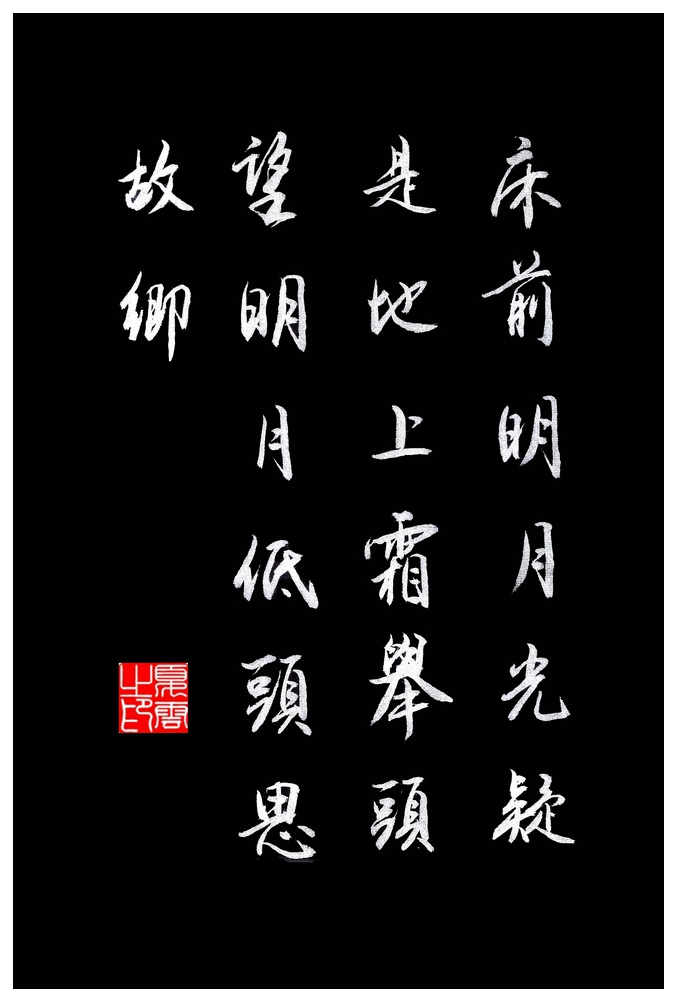 床前明月光疑
是地上霜舉頭
望明月低頭思
故鄉